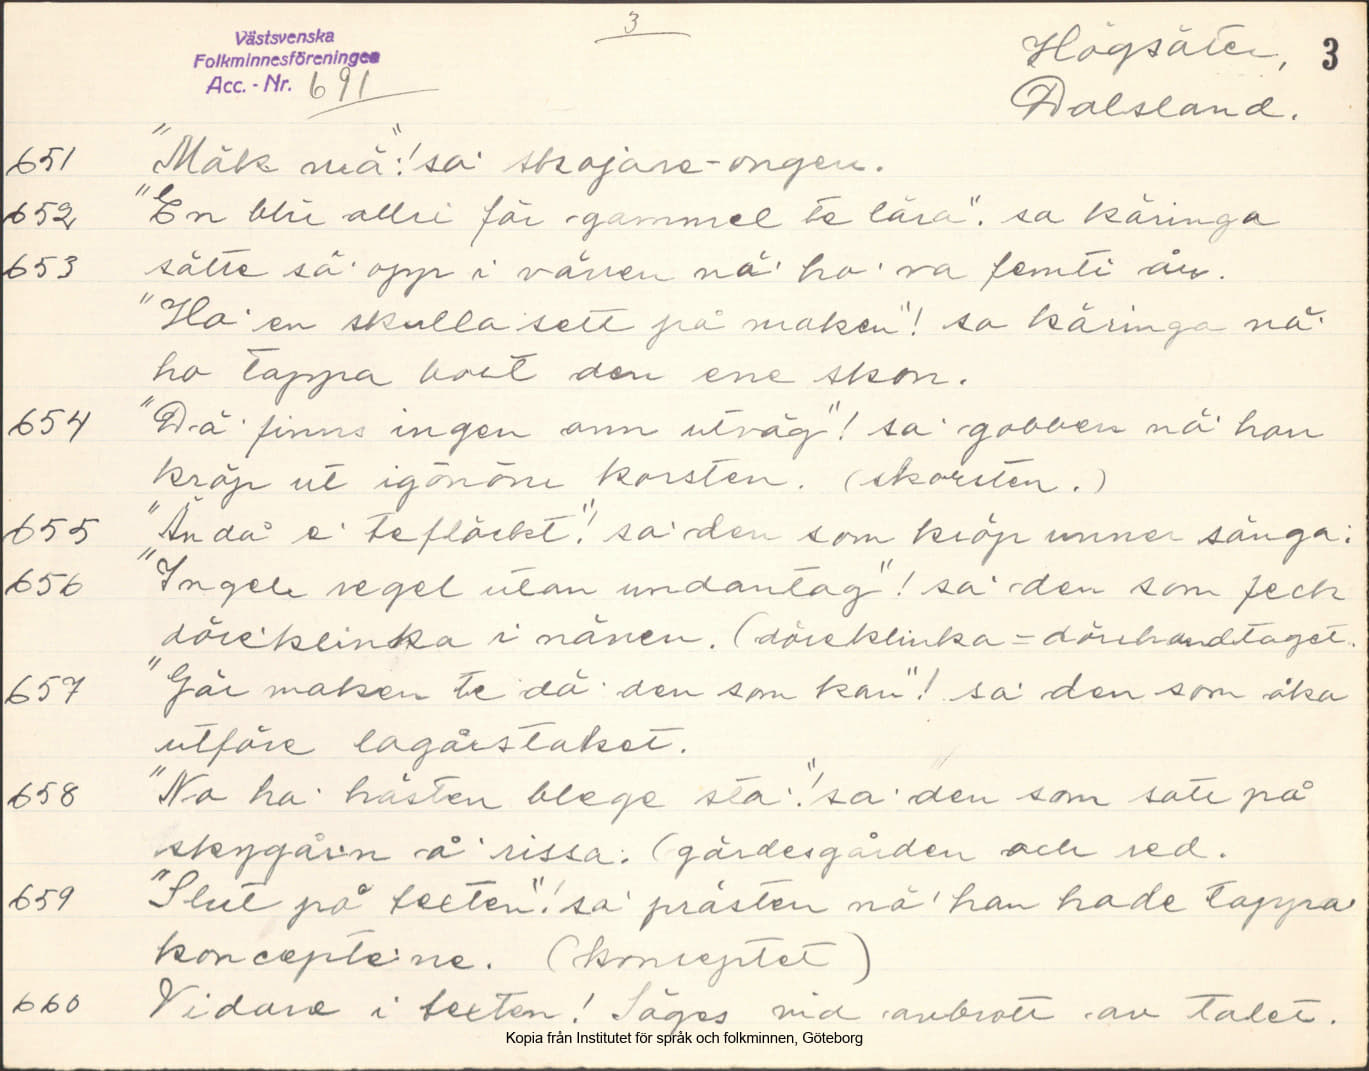 3
Västsvenska
Folkminnesföreningen
Acc. - Nr. 691
Högsäter, 3
Dalsland.
651 "Mäk mä"! sa' skojare-ongen.
652 "En blir allri för gammel te lära". sa käringa
653 sätte sä' opp i väven nä' ho' va femti år.
"Ha' en skulla sett på maken"! sa käringa nä'
ho tappa bort den ene skon.
654 "Dä' finns ingen ann utväg"! sa' gobben nä' han
kröp ut igönöm korsten. (skorsten.)
655 "Än då e' tefläcket"! sa' den som kröp unner sänga.
656 "Ingen regel utan undantag"! sa' den som feck
döreklinka i näven. (döreklinka = dörrhandtaget.
657 "Gär maken te dä' den som kan"! sa' den som åka
utföre lagårstaket.
658 "No ha' hästen blege sta'"! sa' den som satt på
skygårn å' rissa. (gärdesgården och red.
659 "Slut på texten"! sa' prästen nä' han hade tappa'
koncepte'ne. (konseptet)
660 Vidare i texten! Säges vid avbrott av talet.
Kopia från Institutet för språk och folkminnen, Göteborg